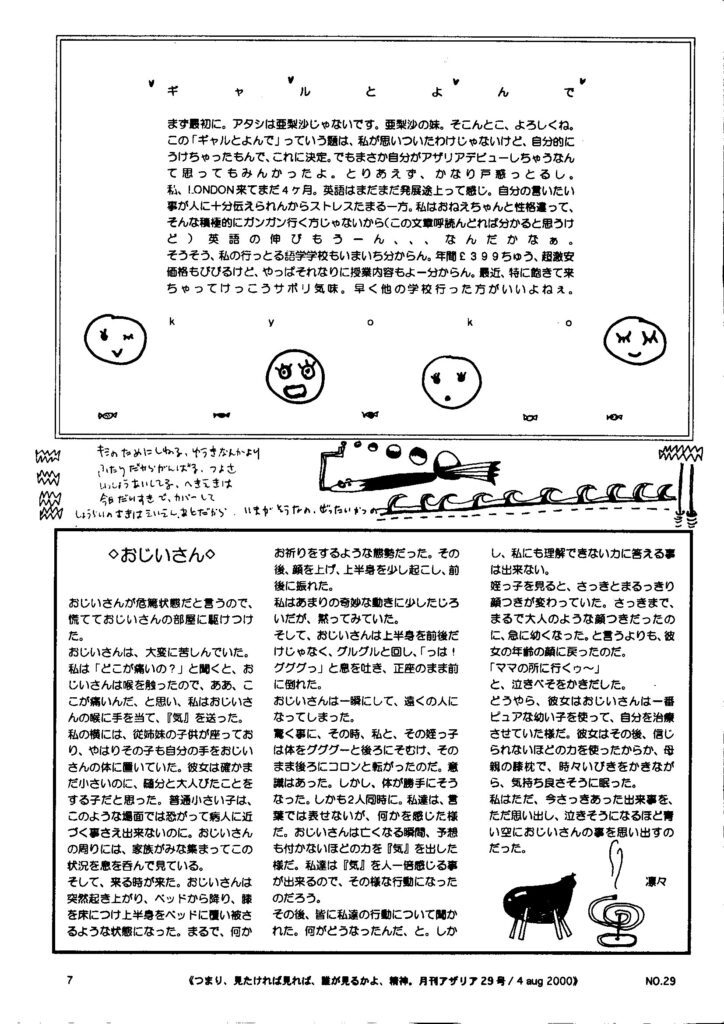 ギャルとよんで
まず最初に。アタシは亜梨沙じゃないです。亜梨沙の妹。そこんとこ、よろしくね。
この「ギャルとよんで」っていう題は、私が思いついたわけじゃないけど、自分的に
うけちゃったもんで、これに決定。でもまさか自分がアザリアデビューしちゃうなん
て思ってもみんかったよ。とりあえず、かなり戸惑っとるし。
私、LONDON来てまだ4ヶ月。英語はまだまだ発展途上って感じ。自分の言いたい
事が人に十分伝えられんからストレスたまる一方。私はおねえちゃんと性格違って、
そんな積極的にガンガン行く方じゃないから(この文章呼読んどれば分かると思うけ
ど)英語の伸びもうーん、、、なんだかなぁ。
そうそう、私の行っとる語学学校もいまいち分からん。年間£399ちゅう、超激安
価格もびびるけど、やっぱそれなりに授業内容もよー分からん。最近、特に飽きて来
ちゃってけっこうサボリ気味。早く他の学校行った方がいいよねぇ。
kyoko
キミのためにしねる、ゆうきなんかより
ふたりだからがんばる、つよさ
いっしょうあいしてる、へきてきは
今日だいすきで、カバーして
◇おじいさん◇
おじいさんが危篤状態だと言うので、
慌てておじいさんの部屋に駆けつけ
た。
おじいさんは、大変に苦しんでいた。
私は「どこが痛いの?」と聞くと、お
じいさんは喉を触ったので、ああ、こ
こが痛いんだ、と思い、私はおじいさ
んの喉に手を当て、『気』を送った。
私の横には、従姉妹の子供が座ってお
り、やはりその子も自分の手をおじい
さんの体に置いていた。彼女は確かま
だ小さいのに、随分と大人びたことを
する子だと思った。普通小さい子は、
このような場面では恐がって病人に近
づく事さえ出来ないのに。おじいさん
の周りには、家族がみな集まってこの
状況を息を呑んで見ている。
そして、来る時が来た。おじいさんは
突然起き上がり、ベッドから降り、膝
を床につけ上半身をベッドに覆い被さ
るような状態になった。まるで、何か
お祈りをするような態勢だった。その
後、顔を上げ、上半身を少し起こし、前
後に振れた。
私はあまりの奇妙な動きに少したじろ
いだが、黙ってみていた。
そして、おじいさんは上半身を前後だ
けじゃなく、グルグルと回し、「っは!
グググっ」と息を吐き、正座のまま前
に倒れた。
おじいさんは一瞬にして、遠くの人に
なってしまった。
驚く事に、その時、私と、その姪っ子
は体をグググーと後ろにそむけ、その
まま後ろにコロンと転がったのだ。意
識はあった。しかし、体が勝手にそう
なった。しかも2人同時に。私達は、言
葉では表せないが、何かを感じた様
だ。おじいさんは亡くなる瞬間、予想
も付かないほどの力を『気』を出した
様だ。私達は『気』を人一倍感じる事
が出来るので、その様な行動になった
のだろう。
その後、皆に私達の行動について聞か
れた。何がどうなったんだ、と。しか
し、私にも理解できない力に答える事
は出来ない。
姪っ子を見ると、さっきとまるっきり
顔つきが変わっていた。さっきまで、
まるで大人のような顔つきだったの
に、急に幼くなった。と言うよりも、彼
女の年齢の顔に戻ったのだ。
「ママの所に行くゥ〜」
と、泣きべそをかきだした。
どうやら、彼女はおじいさんは一番
ピュアな幼い子を使って、自分を治療
させていた様だ。彼女はその後、信じ
られないほどの力を使ったからか、母
親の膝枕で、時々いびきをかきなが
ら、気持ち良さそうに眠った。
私はただ、今さっきあった出来事を、
ただ思い出し、泣きそうになるほど青
い空におじいさんの事を思い出すの
だった。
凛々
7
《つまり、見たければ見れば、誰が見るかよ、精神。月刊アザリア29号/4 aug 2000》
NO.29